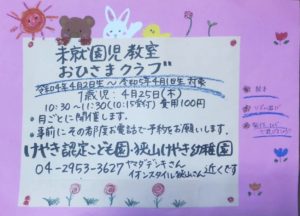 未就園児教室
おひさまクラブ
令和4年4月2日生～令和5年4月1日生 対象
1歳児:4月25日(木)
10:30～11:30(10:15受付) 費用100円
・月ごとに開催します。
・事前にその都度お電話で予約をお願いします。
けやき認定こども園・狭山けやき幼稚園
04-2953-3627
ヤマダデンキさん
イオンスタイル狭山さん 近くです